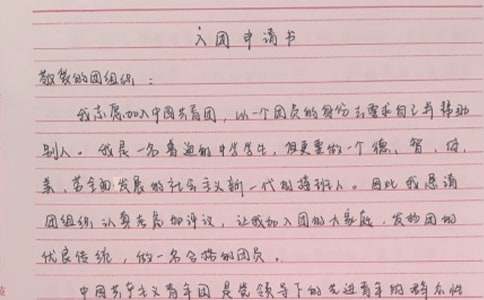 入团申请书
敬爱的团组织：
我志愿加入中国共青团，以一个团员的身份去要求自己与帮助
别人。我是一名普通的中学学生，但更要做一个德、智、体、
美、劳全面发展的社会主义新一代的接班人。因此我恳请
团组织认真考虑和评议，让我加入团的大家庭，发扬团的
优良传统，做一名合格的团员。
中国共产主义青年团是党领导下的先进青年的群众性